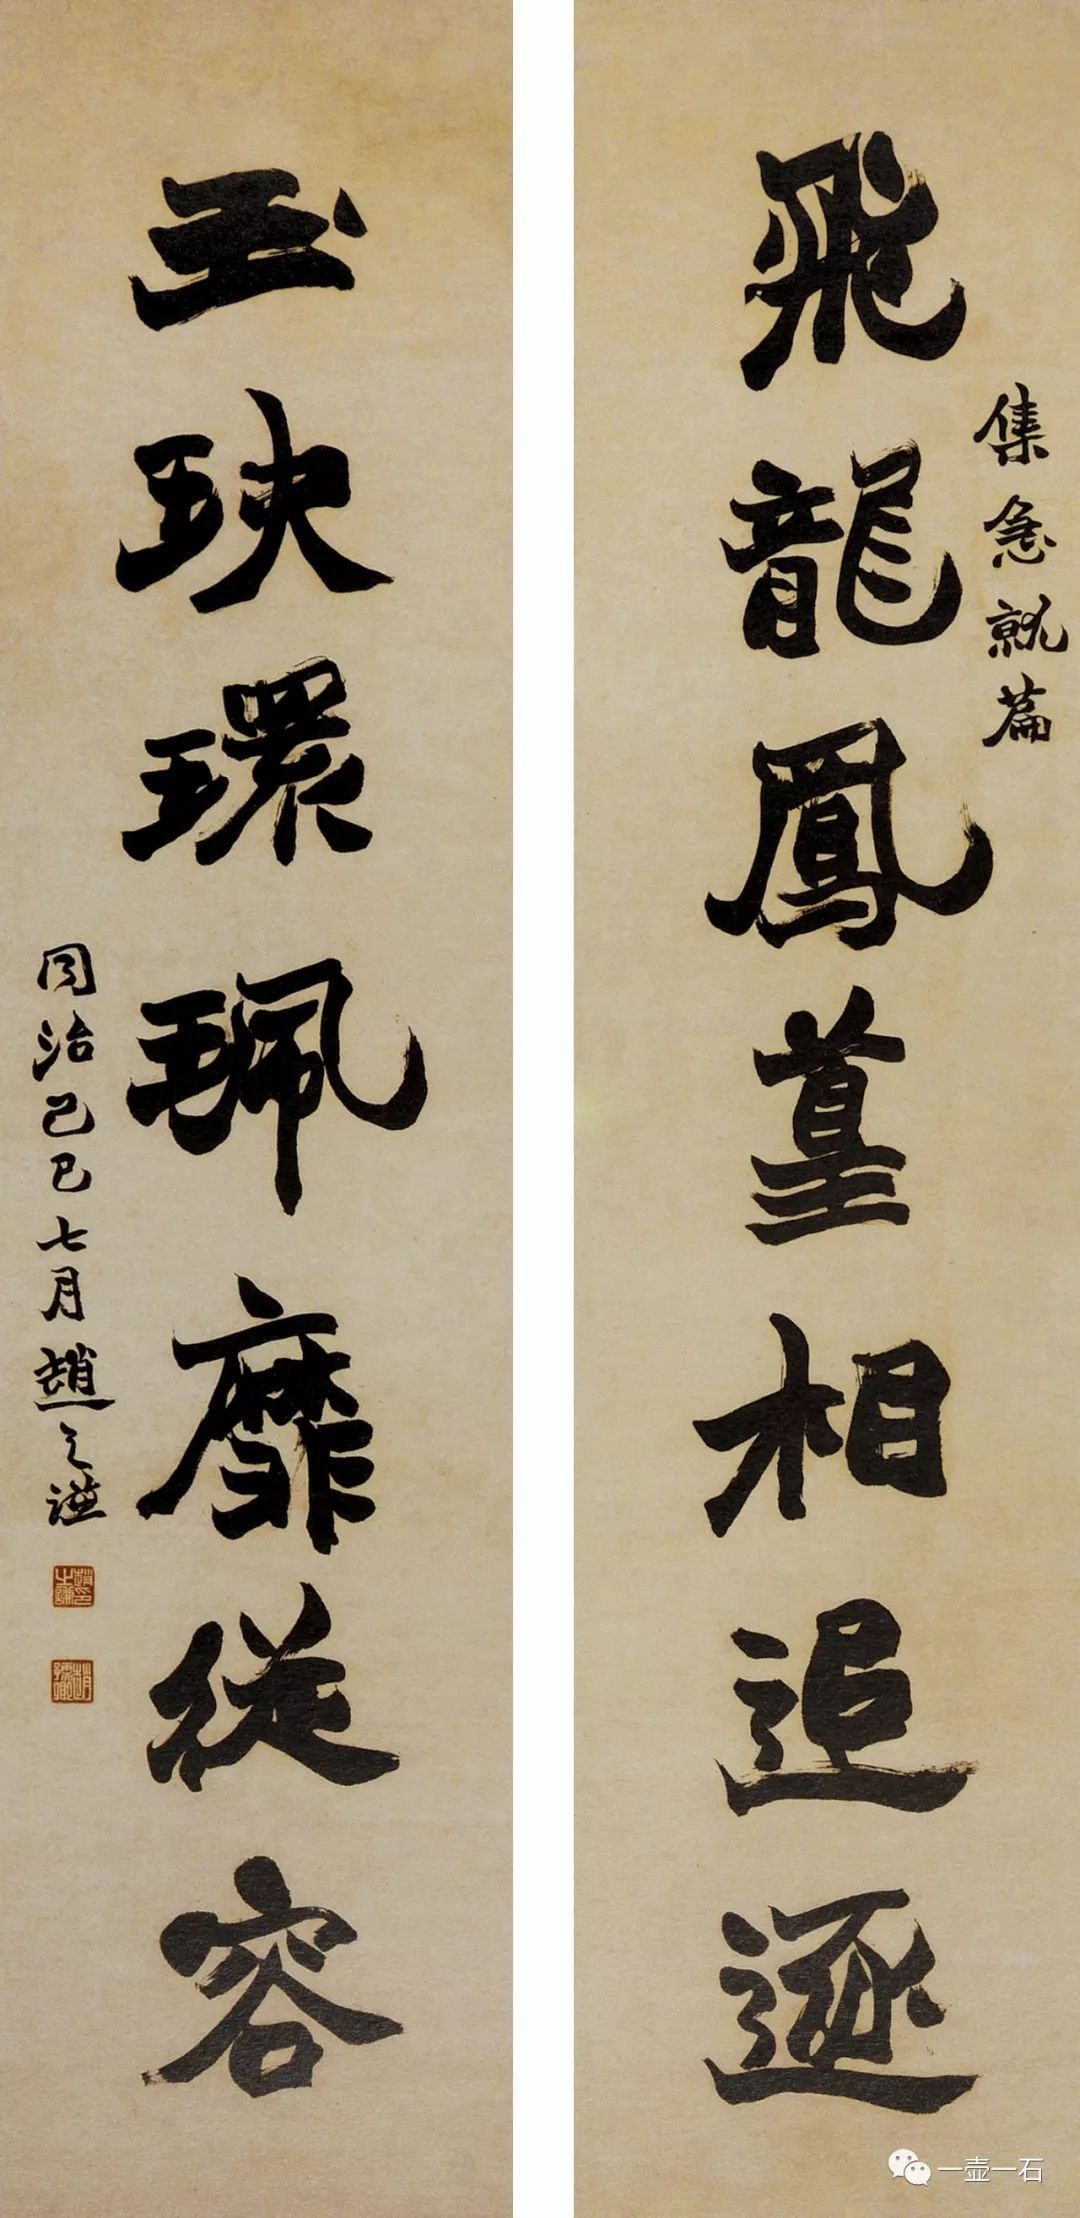 集急就篇
飛龍鳳葟相追逐
玉玦環珮靡從容
同治己巳七月趙之謙
趙之謙印
一壶一石